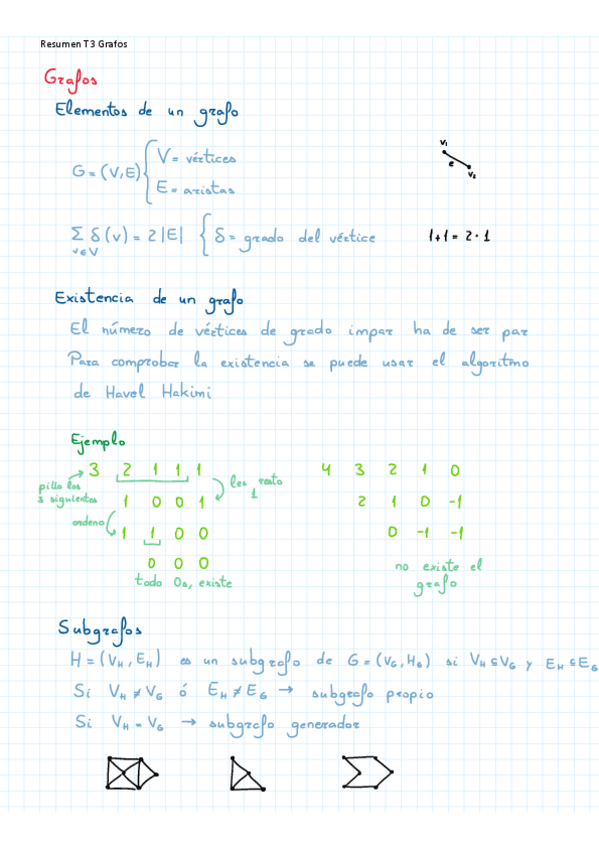 Resumen T3 Grafos
Grafos
Elementos de un grafo
G = (V, E) { V = vértices
E = aristas
v₁
e
v₂
Σ δ(v) = 2|E| { δ = grado del vértice
v∈V
1+1 = 2·1
Existencia de un grafo
El número de vértices de grado impar ha de ser par
Para comprobar la existencia se puede usar el algoritmo
de Havel Hakimi
Ejemplo
3 2 1 1 1
pillo los
3 siguientes
les resto
1
1 0 0 1
ordeno
1 1 0 0
0 0 0
todo 0s, existe
4 3 2 1 0
2 1 0 -1
0 -1 -1
no existe el
grafo
Subgrafos
H = (V_H, E_H) es un subgrafo de G = (V_G, H_G) si V_H ⊆ V_G y E_H ⊆ E_G
Si V_H ≠ V_G ó E_H ≠ E_G → subgrafo propio
Si V_H = V_G → subgrafo generador